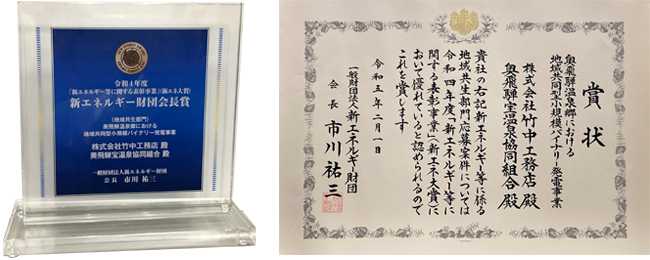 令和4年度
「新エネルギー等に関する表彰事業」(新エネ大賞)
新エネルギー財団会長賞
(地域共生部門)
奥飛騨温泉郷における
地域共同型小規模バイナリー発電事業
株式会社竹中工務店 殿
奥飛騨宝温泉協同組合 殿
一般財団法人新エネルギー財団
会長 市川 祐三
賞状
奥飛騨温泉郷における
地域共同型小規模バイナリー発電事業
株式会社竹中工務店 殿
奥飛騨宝温泉協同組合 殿
貴社の右記新エネルギー等に係る
地域共生部門応募案件については
令和四年度「新エネルギー等に
関する表彰事業」(新エネ大賞)に
おいて優れていると認められるので
これを賞します
令和五年二月一日
一般財団法人新エネルギー財団
会長 市川祐三